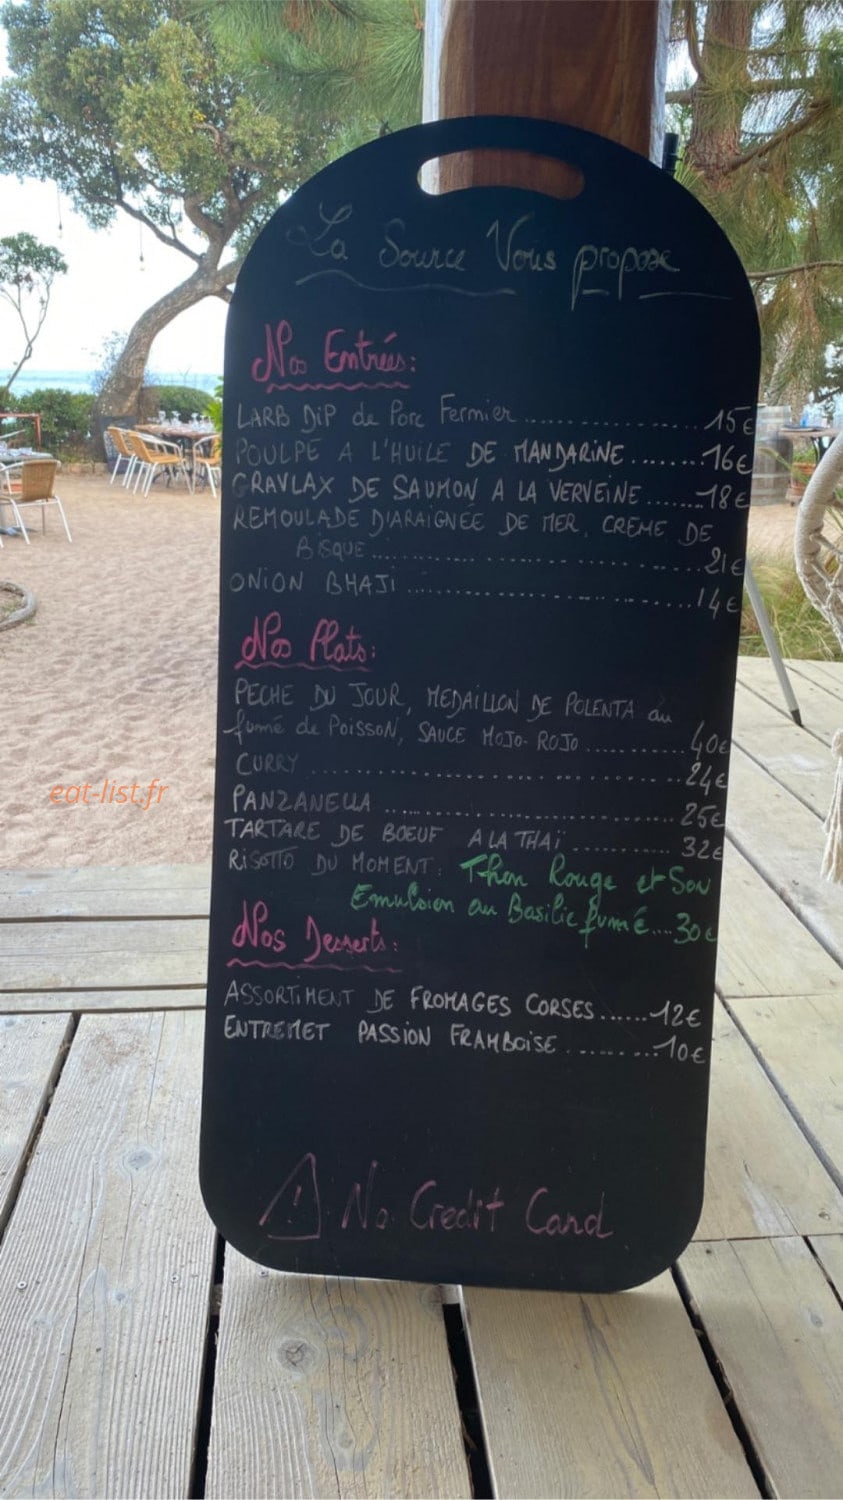 La Source Vous propose
Nos Entrées:
LARB DiP de Porc Fermier..................15€
POULPE A L'HUILE DE MANDARINE........16€
GRAVLAX DE SAUMON A LA VERVEINE.......18€
REMOULADE D'ARAIGNÉE DE MER, CREME DE
BISQUE..............................21€
ONION BHAJI..............................14€
Nos Plats:
PECHE DU JOUR, MEDAILLON DE POLENTA au
fumé de POISSON, SAUCE MOJO-ROJO..........40€
CURRY..............................24€
PANZANELLA..............................25€
TARTARE DE BOEUF A LA THAÏ..........32€
RISOTTO DU MOMENT: Thon Rouge et Son
Emulsion au Basilic fumé....30€
Nos Desserts:
ASSORTIMENT DE FROMAGES CORSES......12€
ENTREMET PASSION FRAMBOISE.........10€
! No Credit Card
eat-list.fr